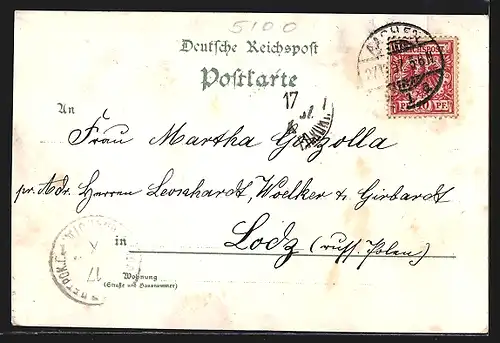 5100
Deutsche Reichspost
Postkarte
AACHEN
REICHSPOST
PF. 10 PF.
17
An
Frau Martha Gorzolla
pr. Adr. Herren Leonhardt, Woelker & Girbardt
in Lodz (russ. Polen)
17
Wohnung
(Straße und Hausnummer)